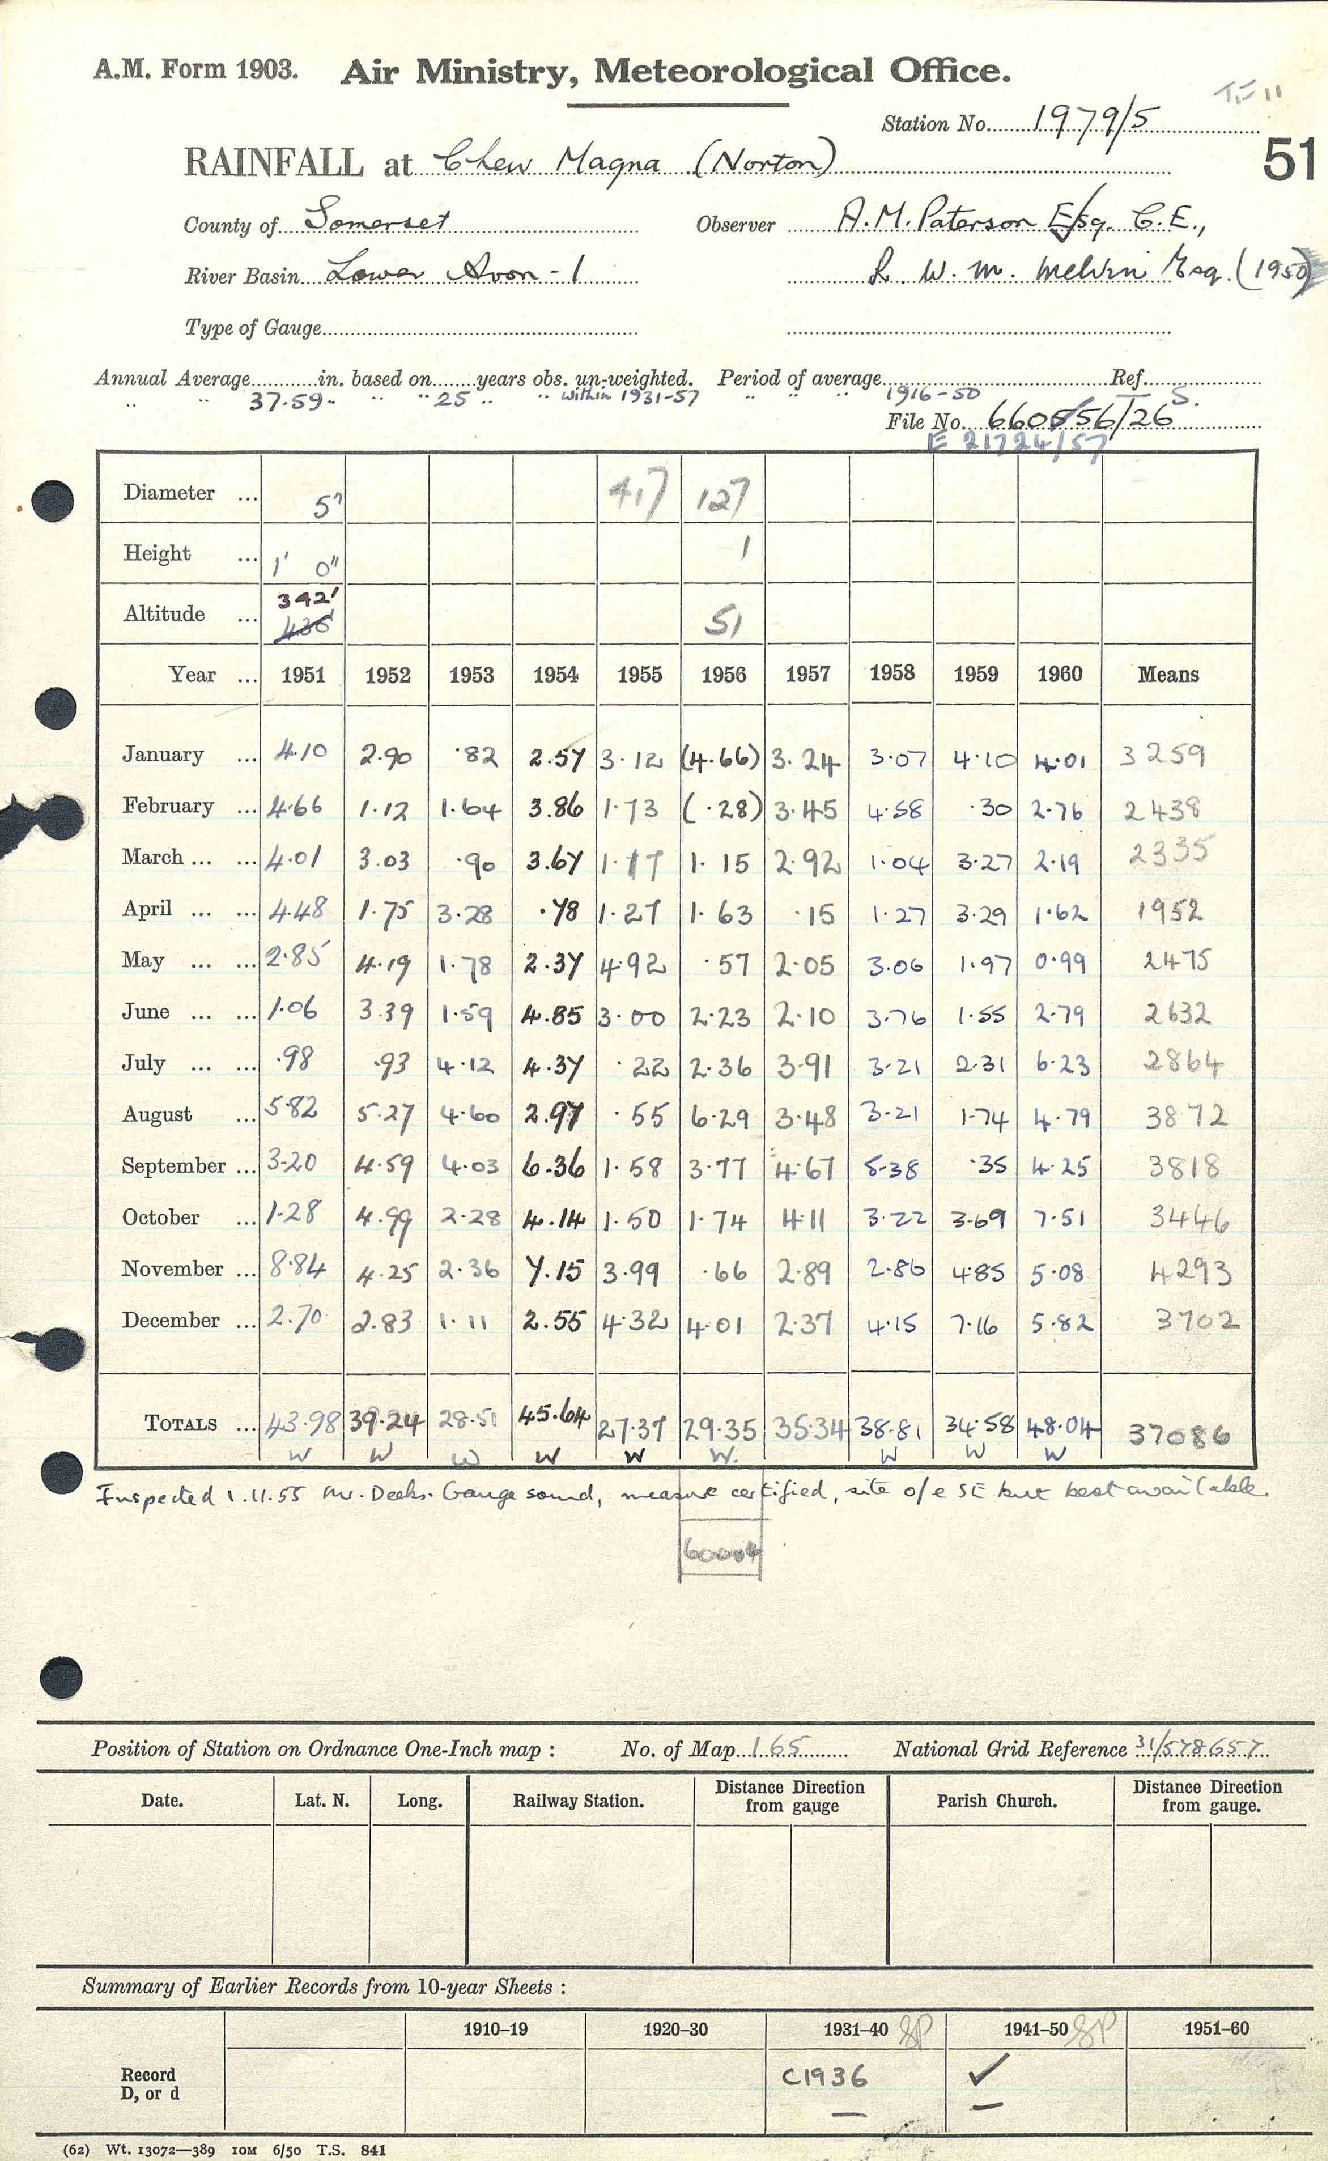 A.M. Form 1903. Air Ministry, Meteorological Office.
Station No. 1979/5
RAINFALL at Chew Magna (Norton)
51
County of Somerset Observer A.M. Paterson Esq. C.E.,
River Basin Lower Avon - 1 R. W. M. Melvin Esq. (1950)
Type of Gauge
Annual Average in. based on years obs. un-weighted. Period of average Ref.
" " 37.59 " " " 25 " " within 1931-57 " " " 1916-50 S.
File No. 660556/T26
E 21724/57
Diameter ... 5" 417 127
Height ... 1' 0" 1
Altitude ... 342' 436' 51
Year ... 1951 1952 1953 1954 1955 1956 1957 1958 1959 1960 Means
January ... 4.10 2.90 .82 2.57 3.12 (4.66) 3.24 3.07 4.10 4.01 3259
February ... 4.66 1.12 1.64 3.86 1.73 (.28) 3.45 4.58 .30 2.76 2438
March ... ... 4.01 3.03 .90 3.67 1.17 1.15 2.92 1.04 3.27 2.19 2335
April ... ... 4.48 1.75 3.28 .78 1.27 1.63 .15 1.27 3.29 1.62 1952
May ... ... 2.85 4.19 1.78 2.37 4.92 .57 2.05 3.06 1.97 0.99 2475
June ... ... 1.06 3.39 1.59 4.85 3.00 2.23 2.10 3.76 1.55 2.79 2632
July ... ... .98 .93 4.12 4.37 .22 2.36 3.91 3.21 2.31 6.23 2864
August ... 5.82 5.27 4.60 2.97 .55 6.29 3.48 3.21 1.74 4.79 3872
September ... 3.20 4.59 4.03 6.36 1.58 3.77 4.67 5.38 .35 4.25 3818
October ... 1.28 4.99 2.28 4.14 1.50 1.74 4.11 3.22 3.69 7.51 3446
November ... 8.84 4.25 2.36 7.15 3.99 .66 2.89 2.86 4.85 5.08 4293
December ... 2.70 2.83 1.11 2.55 4.32 4.01 2.37 4.15 7.16 5.82 3702
TOTALS ... 43.98 39.24 28.51 45.64 27.37 29.35 35.34 38.81 34.58 48.04 37086
W W W W W W. W W W
Inspected 1.11.55 Mr. Deeks. Gauge sound, measure certified, site o/e SE but best available.
60004
Position of Station on Ordnance One-Inch map : No. of Map 165 National Grid Reference 31/578657
Date. Lat. N. Long. Railway Station. Distance Direction from gauge Parish Church. Distance Direction from gauge.
Summary of Earlier Records from 10-year Sheets :
1910–19 1920–30 1931–40 SP 1941–50 SP 1951–60
Record D, or d C1936 ✓
— —
(62) Wt. 13072—389 10M 6/50 T.S. 841